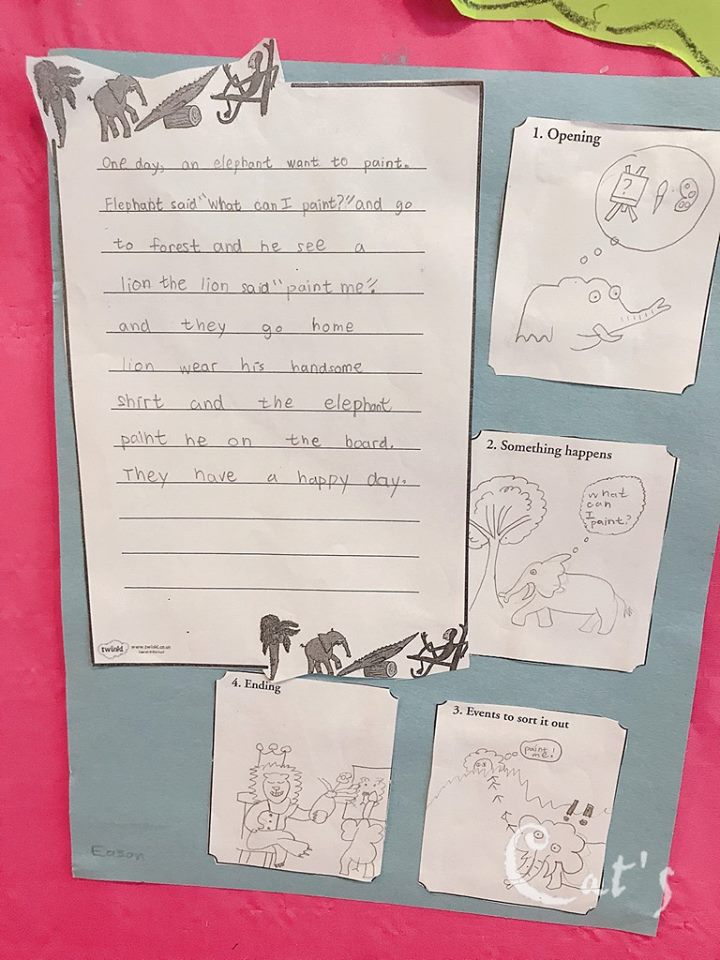 One day, an elephant want to paint.
Elephant said "What can I paint?" and go
to forest and he see a
lion the lion said "paint me".
and they go home
lion wear his handsome
shirt and the elephant
paint he on the board.
They have a happy day.
twinkl
1. Opening
?
2. Something happens
what
can
I
paint?
3. Events to sort it out
paint!
me!
!!
4. Ending
Eason
Cat's